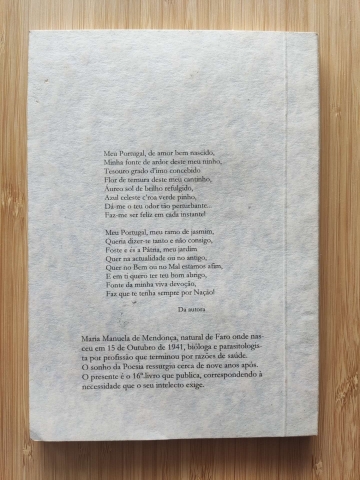 Meu Portugal, de amor bem nascido,
Minha fonte de ardor deste meu ninho,
Tesouro grado d'uno concebido
Flor de ternura deste meu cantinho,
Aureo sol de brilho refulgido,
Azul celeste c'roa verde pinho,
Dá-me o teu odor tão perturbante..
Faz-me ser feliz em cada instante!
Meu Portugal, meu ramo de jasmim,
Queria dizer-te tanto e não consigo,
Foste e és a Pátria, meu jardim
Quer na actualidade ou no antigo,
Quer no Bem ou no Mal estamos afim,
E em ti quero ter teu bom abrigo,
Fonte da minha viva devoção,
Faz que te tenha sempre por Nação!
Da autora
Maria Manuela de Mendonça, natural de Faro onde nas-
ceu em 15 de Outubro de 1941, bióloga e parasitologis-
ta por profissão que terminou por razões de saúde.
O sonho da Poesia ressurgiu cerca de nove anos após.
O presente é o 16º.livro que publica, correspondendo à
necessidade que o seu intelecto exige.